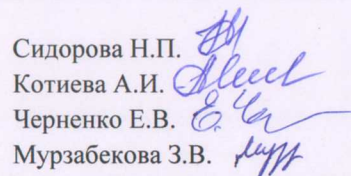 Сидорова Н.П.
Котиева А.И.
Черненко Е.В.
Мурзабекова З.В.